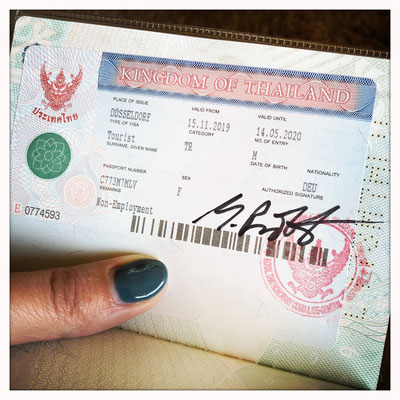 KINGDOM OF THAILAND
ประเทศไทย
PLACE OF ISSUE VALID FROM VALID UNTIL
DÜSSELDORF 15.11.2019 14.05.2020
TYPE OF VISA CATEGORY NO. OF ENTRY
Tourist TR M
SURNAME, GIVEN NAME DATE OF BIRTH NATIONALITY
DEU
PASSPORT NUMBER SEX AUTHORIZED SIGNATURE
C773M7MLV F
REMARKS
Non-Employment
E 0774593